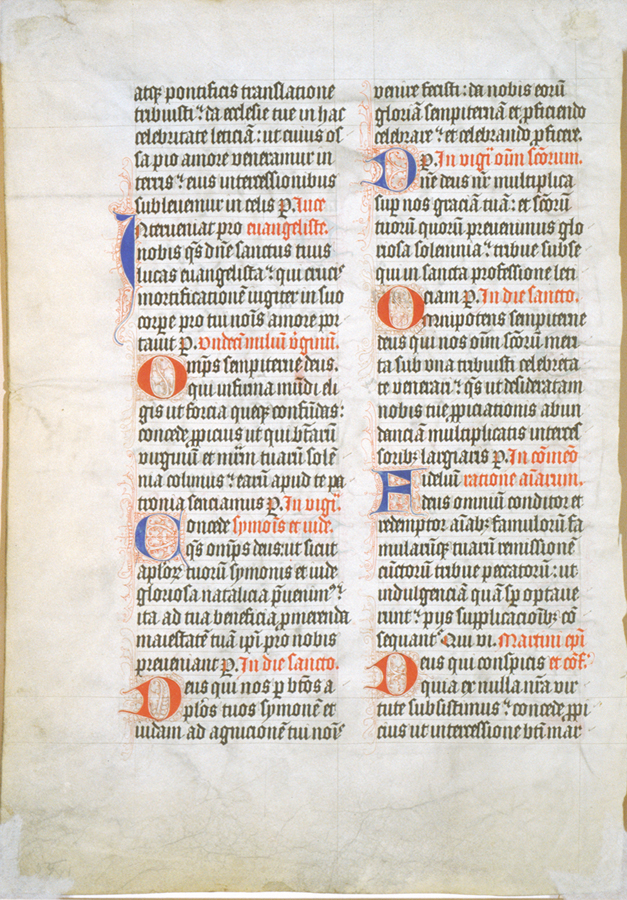 atq̄ pontificis translatione
tribuisti ⁊ da ecclesie tue in hac
celebritate leticiā : ut cuius os
sa pio amore veneramur in
terris ⁊ eius intercessionibus
subleuemur in celis P. Luce
Nterueniat pro euangeliste.
nobis q̄s dn̄e sanctus tuus
lucas euangelista ⁊ qui crucis
mortificationē iugiter in suo
corpe pro tui nois̄ amore por
tauit P. vndecī miliū v̓ginū.
Omp̄s sempiterne deus.
qui infirma mūdi eli
gis ut forcia queq̄ confūdas :
concede ꝓpicius ut qui btārū
virginū et mr̄m tuarū solē
nia colimus ⁊ earū apud te pa
trocinia senciamus P. In vigī.
Concede symōis et iude.
q̄s omp̄s deus : ut sicut
aplorꝝ tuorū symonis et iude
gloriosa natalicia p̄uenim⁹ ⁊
ita ad tua beneficia ꝓmerenda
maiestatē tuā ipī pro nobis
preueniant P. In die sancto.
Deus qui nos p btōs a
plōs tuos symonē et
iudam ad agnicionē tui nois̄
venire fecisti : da nobis eorū
gloriā sempiternā et ꝓficiendo
celebrare ⁊ et celebrando ꝓficere.
P. In vigī oīm sc̄orum.
Dn̄e deus nr̄ multiplica
sup nos graciā tuā : et sc̄orū
tuorū quorū preuenimus glo
riosa solemnia ⁊ tribue subse
qui in sancta professione leti
ciam P. In die sancto.
Omnipotens sempiterne
deus qui nos oīm sc̄orū meri
ta sub vna tribuisti celebrita
te venerari ⁊ q̄s ut desideratam
nobis tue ꝓpiciationis abun
danciā multiplicatis interces
soribꝫ largiaris P. In cōmeō
Fidelium racione aīarum.
deus omniū conditor et
redemptor aīabꝫ famulorū fa
mularūq̄ tuarū remissionē
cūctorū tribue peccatorū : ut
indulgenciā quā sp̄ optaue
runt ⁊ piis supplicacōibꝫ cō
sequant᷑ Qui vi. Martini epī
Deus qui conspicis et cōf.
quia ex nulla nr̄a vir
tute subsistimus ⁊ concede ꝓpi
cius ut intercessione btī mar